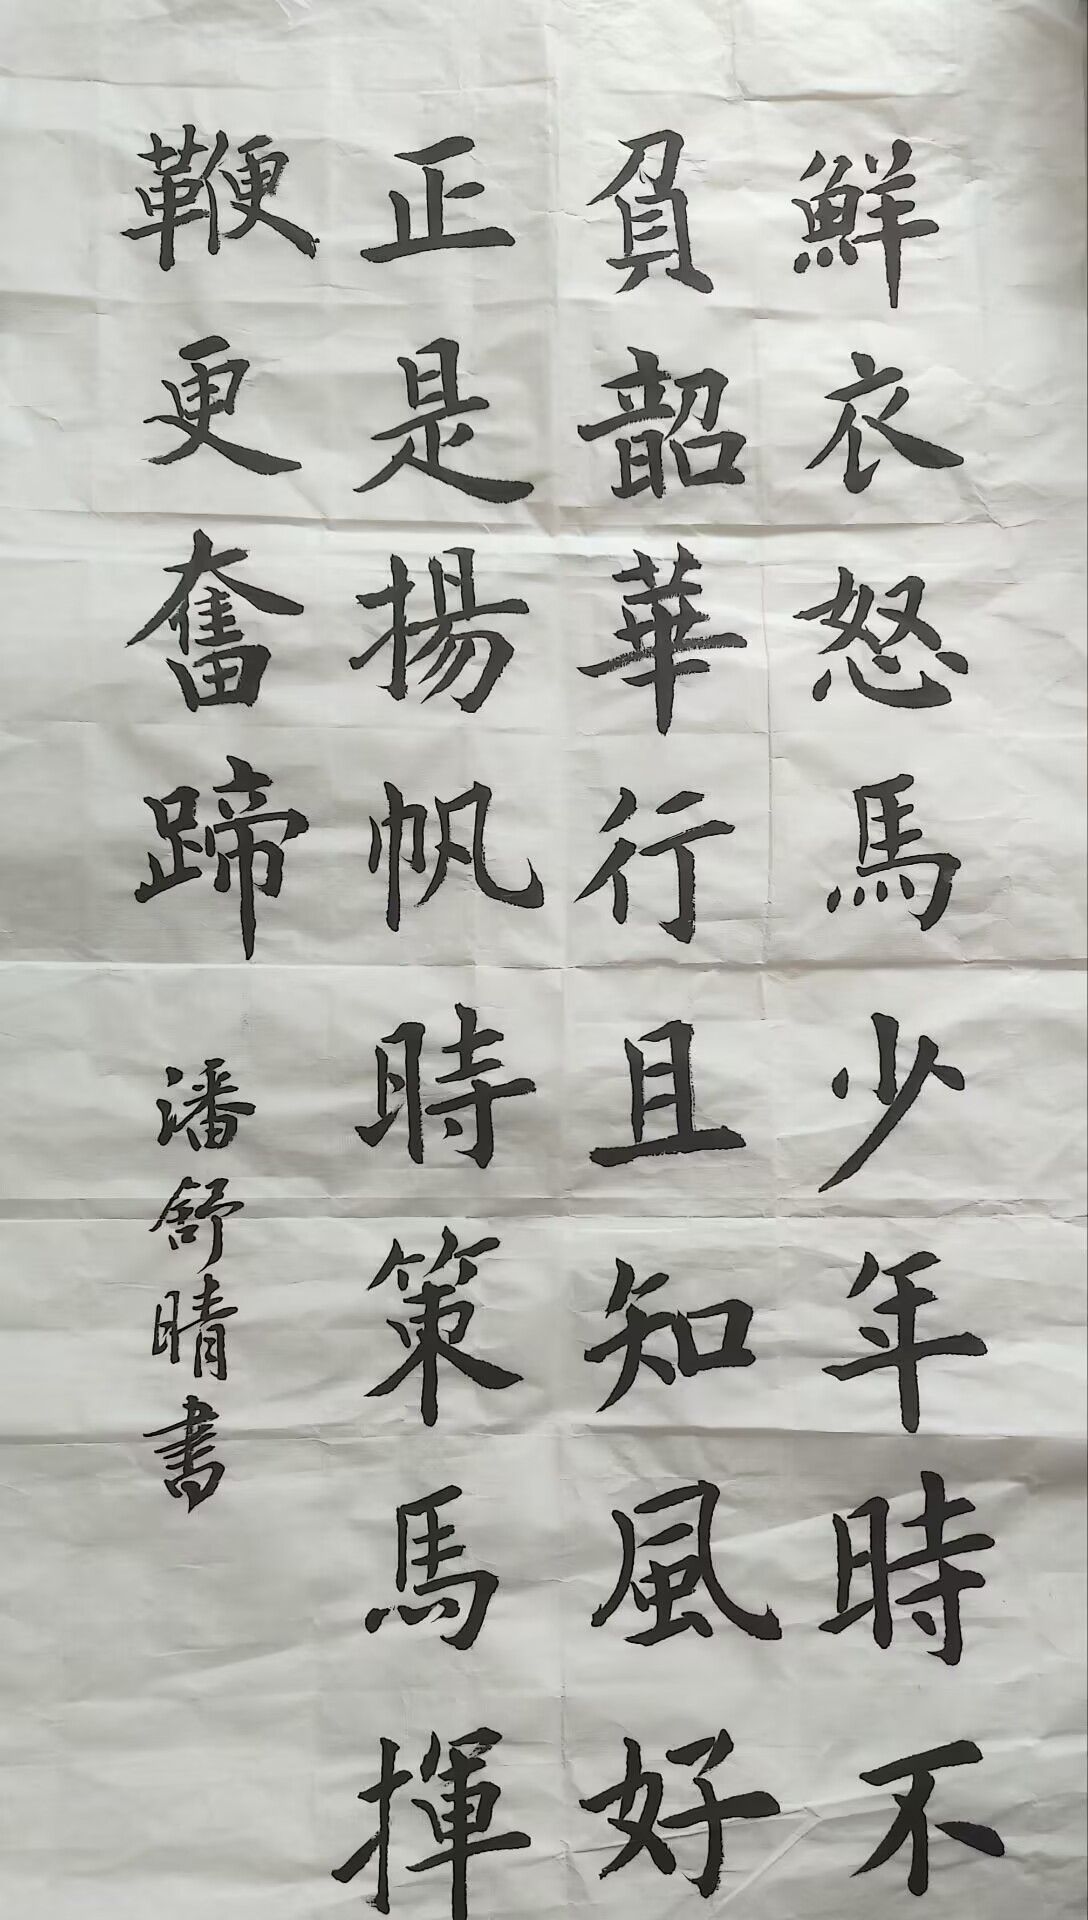 鮮衣怒馬少年時不
負韶華行且知風好
正是揚帆時策馬揮
鞭更奮蹄
潘舒晴書